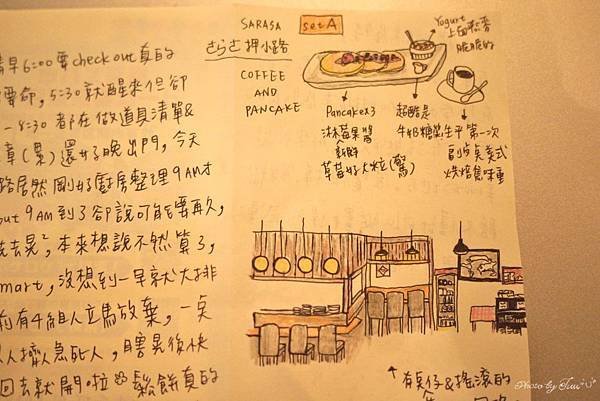 清早6:00要check out真的
要命，5:30就醒來但卻
-8:30都在做道具清單&
章(累)還好晚出門，今天
路居然剛好廚房整理9AM才
out 9AM到了卻說可能要再久，
去晃²，本來想說不然算了，
mart，沒想到一早就大排
前有4組人立馬放棄，一桌
人擠人急死人，瞎晃後快
回去就開啦 鬆餅真的
SARASA
set A
さらさ押小路
COFFEE
AND
PANCAKE
Yogurt
上面有麥
脆脆的
Pancake x3
淋莓果醬
&新鮮
草莓好大粒(驚)
超酷是
牛奶糖
生平第一次
喝美式
烘焙焦味重
↑有朵仔&搖滾的
Photo by